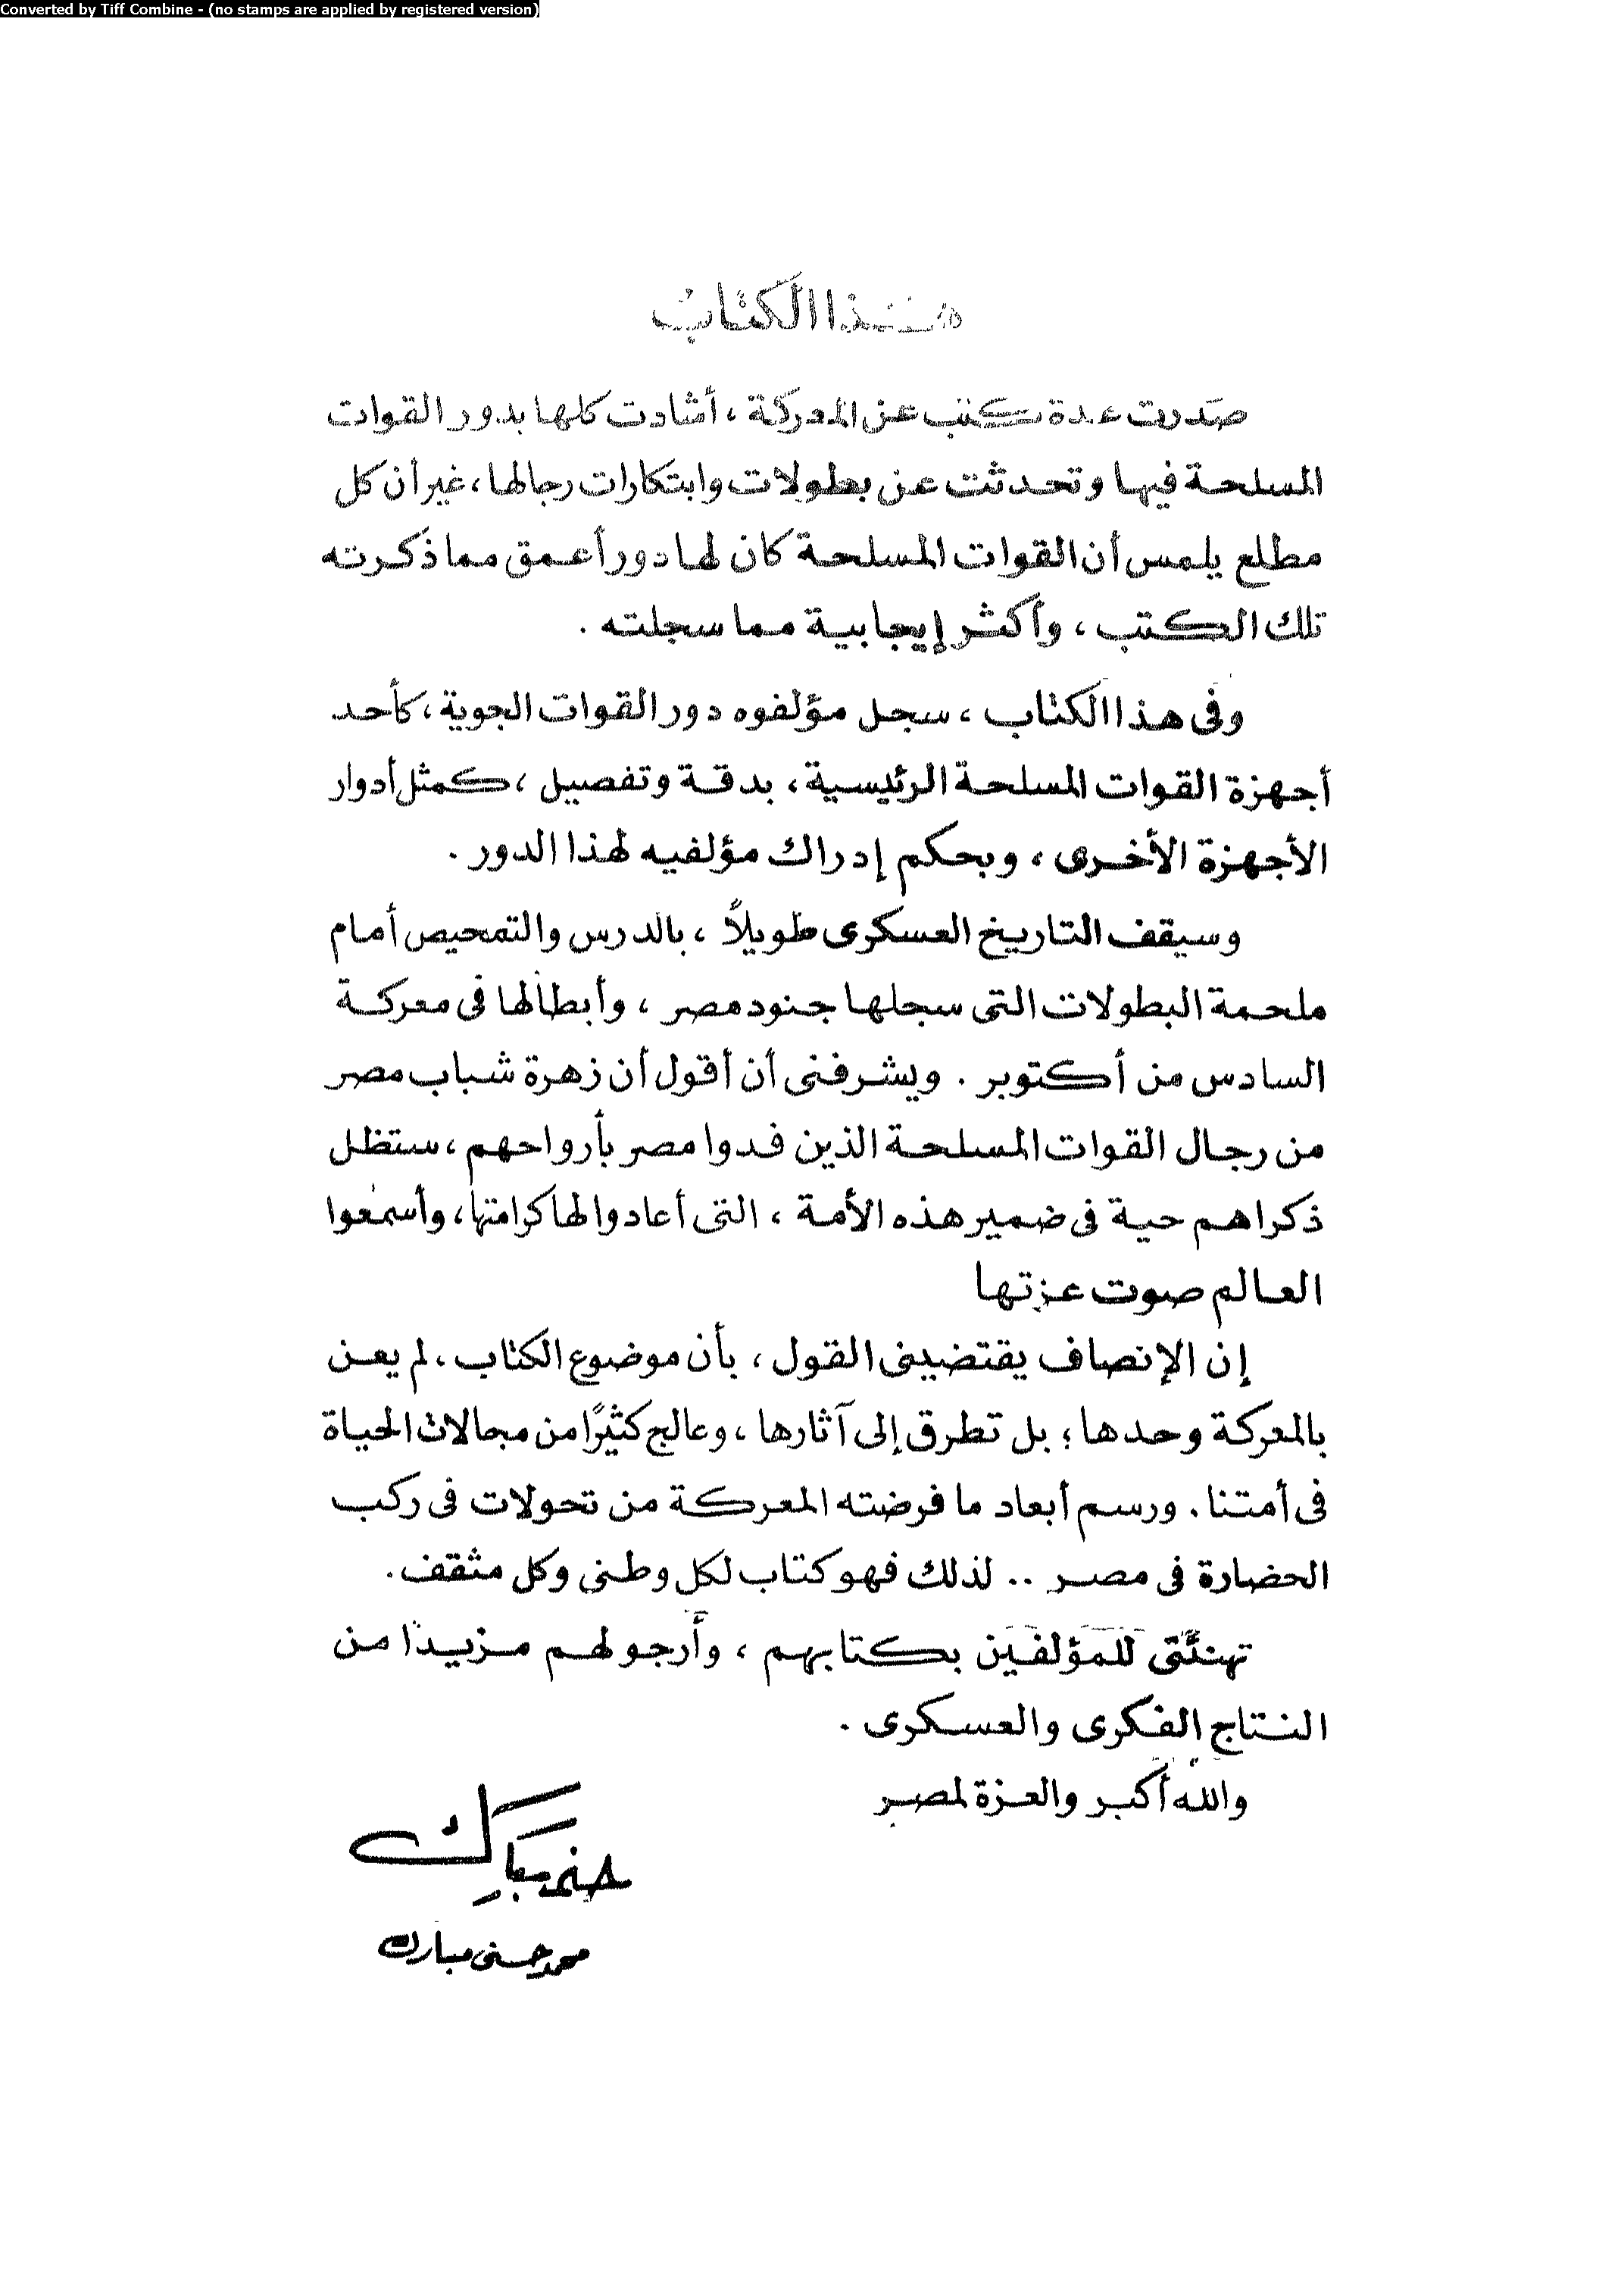 Converted by Tiff Combine - (no stamps are applied by registered version)
هذا الكتاب
صدرت عدة كتب عن المعركة ، أشادت كلها بدور القوات
المسلحة فيها وتحدثت عن بطولات وابتكارات رجالها ، غير أن كل
مطلع يلمس أن القوات المسلحة كان لها دور أعمق مما ذكرته
تلك الكتب ، وأكثر إيجابية مما سجلته .
وفى هذا الكتاب ، سجل مؤلفوه دور القوات الجوية ، كأحد
أجهزة القوات المسلحة الرئيسية ، بدقة وتفصيل ، كمثل أدوار
الأجهزة الأخرى ، وبحكم إدراك مؤلفيه لهذا الدور .
وسيقف التاريخ العسكرى طويلاً ، بالدرس والتمحيص أمام
ملحمة البطولات التى سجلها جنود مصر ، وأبطالها فى معركة
السادس من أكتوبر . ويشرفنى أن أقول أن زهرة شباب مصر
من رجال القوات المسلحة الذين فدوا مصر بأرواحهم ، ستظل
ذكراهم حية فى ضمير هذه الأمة ، التى أعادوا لها كرامتها ، وأسمعوا
العالم صوت عزتها
إن الإنصاف يقتضينى القول ، بأن موضوع الكتاب ، لم يعن
بالمعركة وحدها ؛ بل تطرق إلى آثارها ، وعالج كثيرًا من مجالات الحياة
فى أمتنا . ورسم أبعاد ما فرضته المعركة من تحولات فى ركب
الحضارة فى مصر .. لذلك فهو كتاب لكل وطنى وكل مثقف .
تهنئتى للمؤلفين بكتابهم ، وأرجو لهم مزيدًا من
النتاج الفكرى والعسكرى .
والله أكبر والعزة لمصر
حسنى مبارك
محمد حسنى مبارك